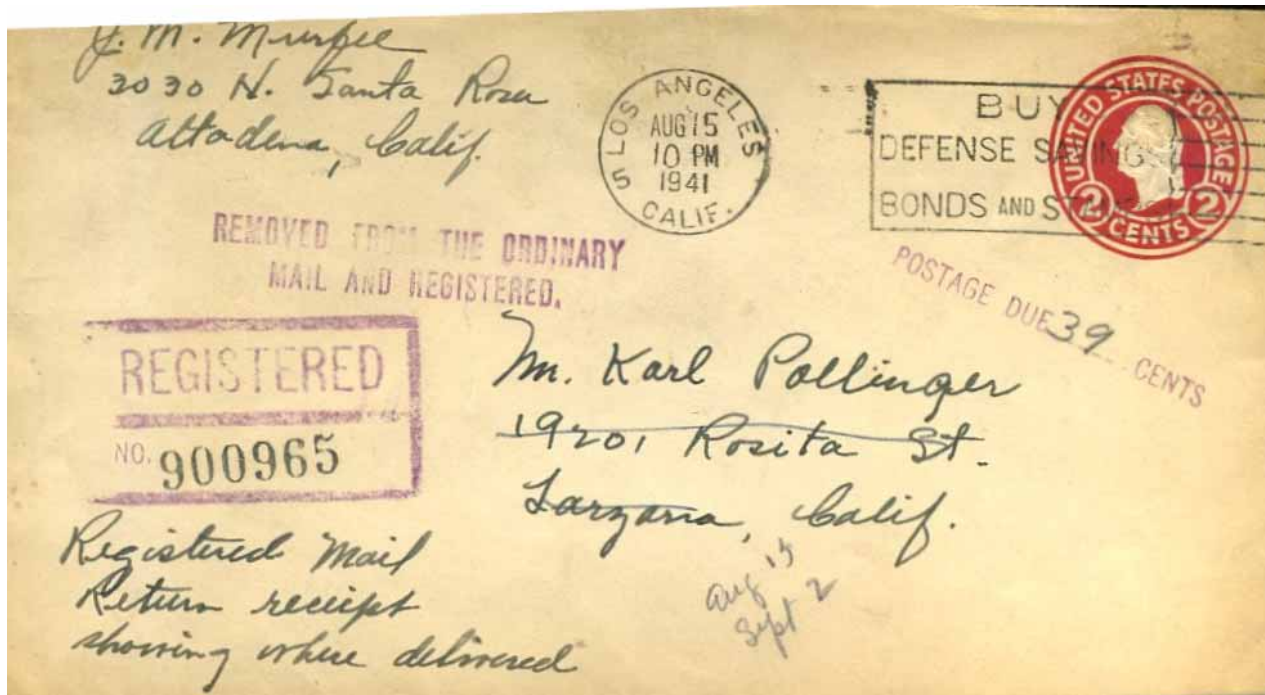 J. M. Murfee
3030 N. Santa Rosa
Altadena, Calif.
LOS ANGELES
AUG 15
10 PM
1941
5
CALIF.
BUY
DEFENSE SAVINGS
BONDS AND STAMPS
UNITED STATES POSTAGE
2 2
CENTS
REMOVED FROM THE ORDINARY
MAIL AND REGISTERED.
POSTAGE DUE 39 CENTS
REGISTERED
NO. 900965
Mr. Karl Pollinger
19201 Rosita St.
Tarzana, Calif.
Registered Mail
Return receipt
showing where delivered
Aug 15
Sept 2